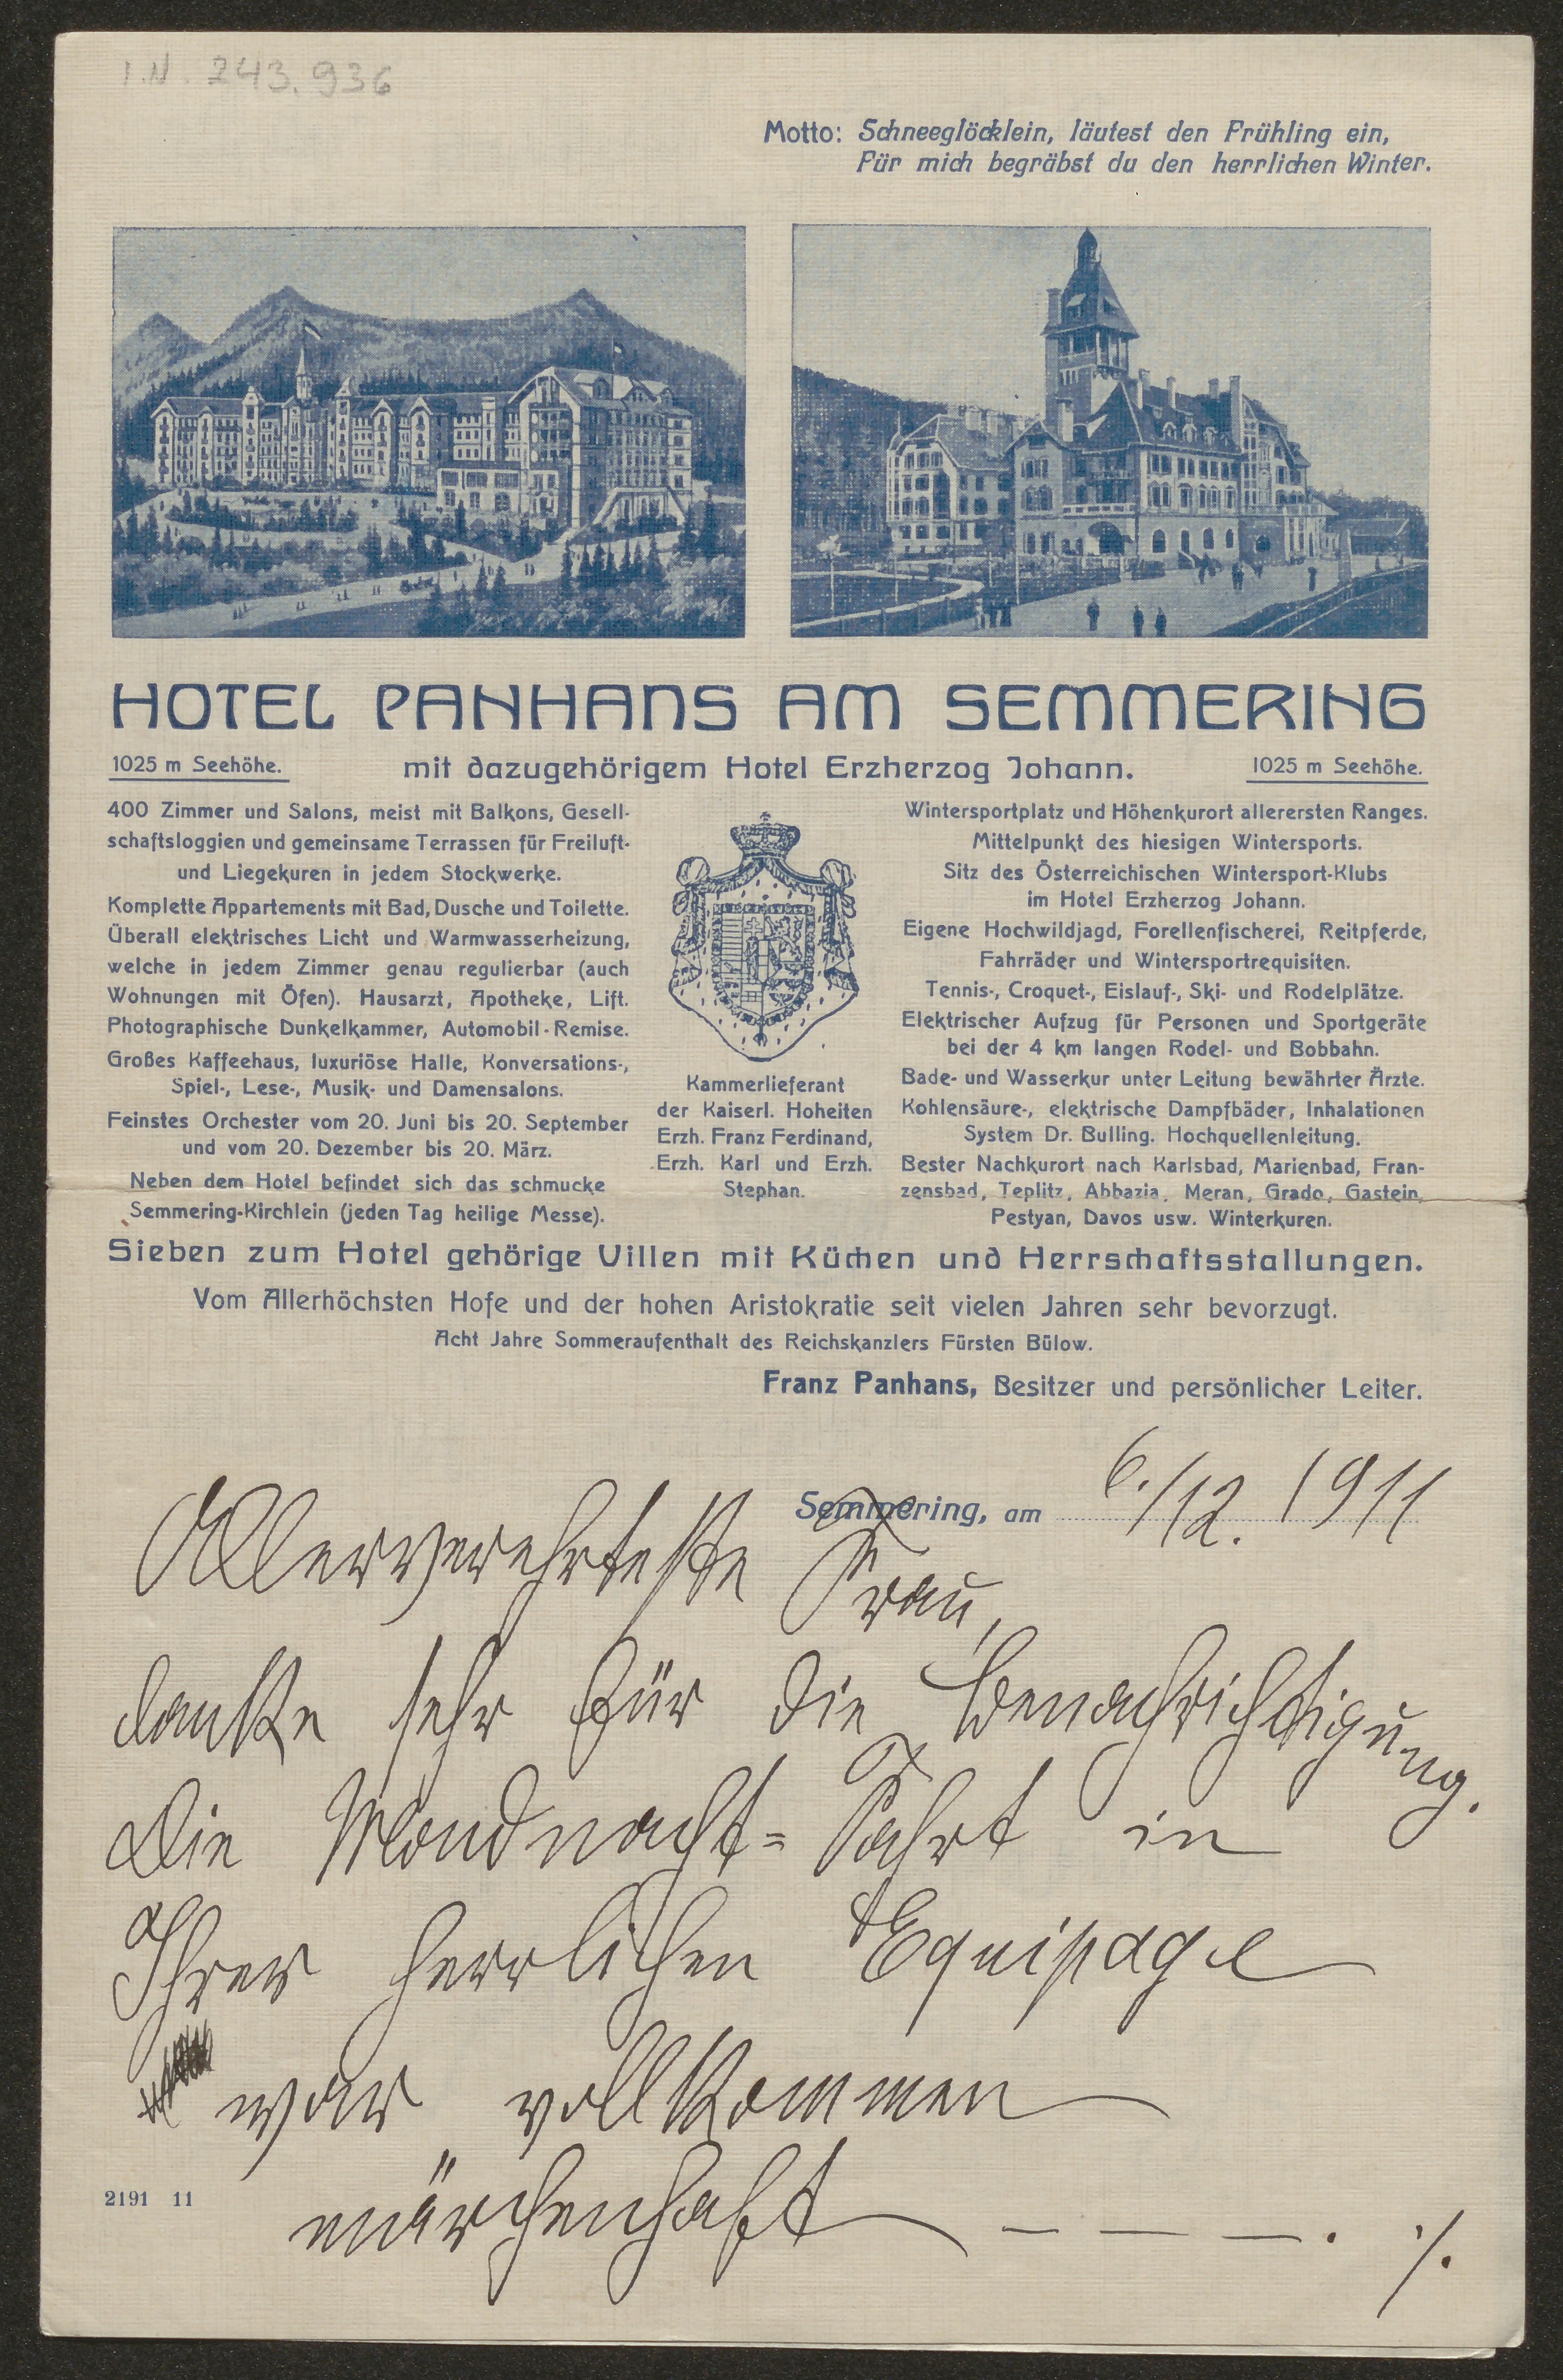 I.N. 243.936
Motto: Schneeglöcklein, läutest den Frühling ein,
Für mich begräbst du den herrlichen Winter.
HOTEL PANHANS AM SEMMERING
1025 m Seehöhe.
mit dazugehörigem Hotel Erzherzog Johann.
1025 m Seehöhe.
400 Zimmer und Salons, meist mit Balkons, Gesell-
schaftsloggien und gemeinsame Terrassen für Freiluft-
und Liegekuren in jedem Stockwerke.
Komplette Appartements mit Bad, Dusche und Toilette.
Überall elektrisches Licht und Warmwasserheizung,
welche in jedem Zimmer genau regulierbar (auch
Wohnungen mit Öfen). Hausarzt, Apotheke, Lift.
Photographische Dunkelkammer, Automobil-Remise.
Großes Kaffeehaus, luxuriöse Halle, Konversations-,
Spiel-, Lese-, Musik- und Damensalons.
Feinstes Orchester vom 20. Juni bis 20. September
und vom 20. Dezember bis 20. März.
Neben dem Hotel befindet sich das schmucke
Semmering-Kirchlein (jeden Tag heilige Messe).
Kammerlieferant
der Kaiserl. Hoheiten
Erzh. Franz Ferdinand,
Erzh. Karl und Erzh.
Stephan.
Wintersportplatz und Höhenkurort allerersten Ranges.
Mittelpunkt des hiesigen Wintersports.
Sitz des Österreichischen Wintersport-Klubs
im Hotel Erzherzog Johann.
Eigene Hochwildjagd, Forellenfischerei, Reitpferde,
Fahrräder und Wintersportrequisiten.
Tennis-, Croquet-, Eislauf-, Ski- und Rodelplätze.
Elektrischer Aufzug für Personen und Sportgeräte
bei der 4 km langen Rodel- und Bobbahn.
Bade- und Wasserkur unter Leitung bewährter Ärzte.
Kohlensäure-, elektrische Dampfbäder, Inhalationen
System Dr. Bulling. Hochquellenleitung.
Bester Nachkurort nach Karlsbad, Marienbad, Fran-
zensbad, Teplitz, Abbazia, Meran, Grado, Gastein,
Pestyan, Davos usw. Winterkuren.
Sieben zum Hotel gehörige Villen mit Küchen und Herrschaftsstallungen.
Vom Allerhöchsten Hofe und der hohen Aristokratie seit vielen Jahren sehr bevorzugt.
Acht Jahre Sommeraufenthalt des Reichskanzlers Fürsten Bülow.
Franz Panhans, Besitzer und persönlicher Leiter.
Semmering, am 6./12. 1911
Allerverehrteste Frau,
danke sehr für die Benachrichtigung.
Die Mondnacht-Fahrt in
Ihrer herrlichen Equipage
war vollkommen
märchenhaft — — — . ./.
2191 11